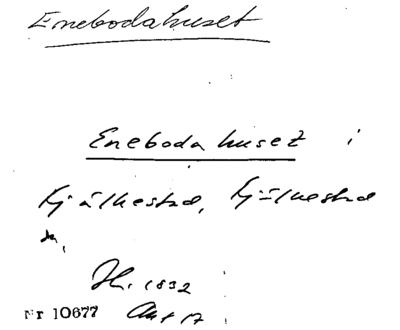 Enebodahuset
Eneboda huset i
Kjälkestad, Kjälkestad
sn,
H. 1832
Nr 10677 Akt 17